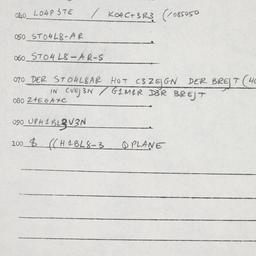 040 LOAP3TE / KOACT3R3 (/085050
050 STO4L8-AR
060 STO4L8-AR-S
070 DER STOHL8AR HOT C3ZEIGN DER BREJT (40
IN CVEJ3N / G1M8R D3R BREJT
080 Z+EOAXC
090 UPH1BL3V3N
100 $ ((H1BL8-3 OPLANE